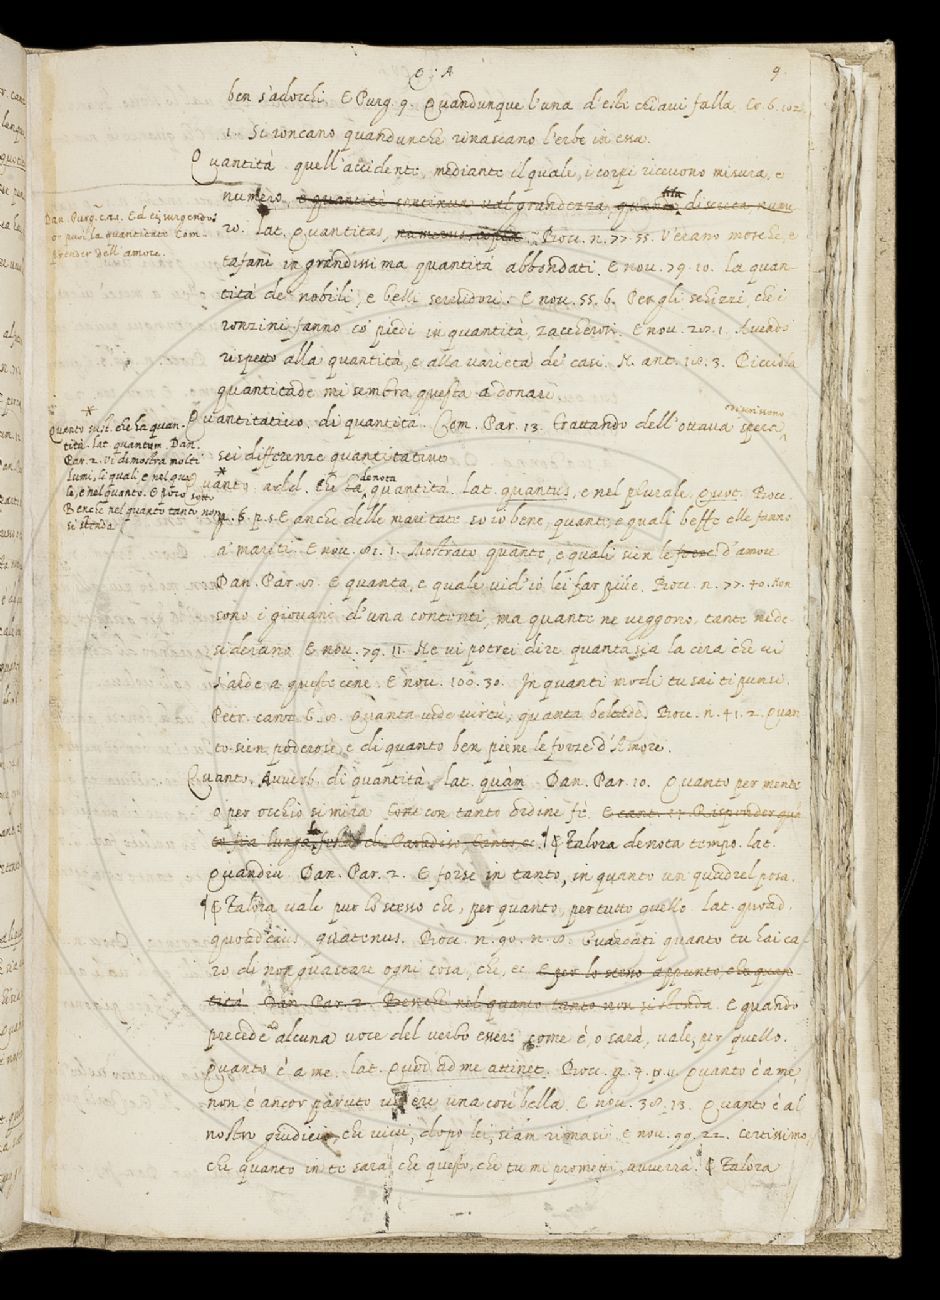 Q A
9
ben s'adocchi. E Purg. 9. Quandunque l'una d'este chiavi falla. Cr. 6. 102.
1. Si troncano quandunche rinascano l'erbe in essa.
Quantità. quell'accidente, mediante il quale, i corpi ricevono misura, e
numero, o quantità continua val grandezza, discreta nume
ro. lat. Quantitas, numerus, copia. Bocc. n. 77. 55. Verano mosche, e
tafani in grandissima quantità abbondati. E nov. 79. 10. la quan-
tità de' nobili, e belli servidori. E nov. 55. 6. Per gli schizzi, che i
ronzini fanno co' piedi in quantità, zaccherosi. E nov. 28. 1. Avendo
rispetto alla quantità, e alla varietà de' casi. N. ant. 18. 3. Picciola
quantitade mi sembra questa a donari
Dan. Purg. c. 21. Ed ei surgendo:
or puoi la quantitate Com-
prender dell'amore.
Quantitativo. di quantità. Com. Par. 13. trattando dell'ottava spera
sei differenze quantitative
* Quanto sust. che ha quan-
tità. lat. quantum. Dan.
Par. 2. vi dimostra molti
lumi, li quali e nel qua
le, e nel quanto. E poco sotto
Benche nel quanto tanto non
si stenda
Quanto * addiet. Che denota quantità. lat. quantus, e nel plurale, quot. Bocc.
E anche delle maritate so io bene, quante, e quali beffe elle fanno
a' mariti. E nov. 81. 1. Mostrato quante, e quali sien le forze d'amore
Dan. Par. 8. E quanta, e quale vid'io lei far piùe. Bocc. n. 77. 40. Non
sono i giovani d'una contenti, ma quante ne veggono, tante ne de-
siderano. E nov. 79. 11. Ne vi potrei dire quanta sia la cera che vi
s'arde a queste cene. E nov. 100. 30. In quanti modi tu sai ti punsi.
Petr. canz. 6. 8. Quanta vede virtù, quanta beltade. Bocc. n. 41. 2. Quan
to sien poderose, e di quanto ben piene le forze d'Amore.
Quanto. Avverb. di quantità. lat. quàm. Dan. Par. 10. Quanto per mente
o per occhio si mira Con tanto ordine fè. E cant. Risponder quã
to fia lunga la festa di Paradiso, tanto ec. ¶ Talora denota tempo. lat.
Quandiu. Dan. Par. 2. E forse in tanto, in quanto un quadrel posa.
¶ Talora vale pur lo stesso che, per quanto, per tutto quello. lat. quoad.
quoad eius, quatenus. Bocc. n. 90. n. 8. Guardati quanto tu hai ca
ro di non guastare ogni cosa, che, ec. E per lo stesso appunto che quan-
tità. Dan. Par. 2. Benche nel quanto tanto non si stenda. E quando
precede ad alcuna voce del verbo essere come è, o sarà, vale, per quello.
Quanto è a me. lat. Quod ad me attinet. Bocc. g. 4. p. Quanto è a me,
non è ancor paruto vedere una così bella. E nov. 38. 13. Quanto è al
nostro giudicio, che vivi, dopo lei, siàn rimasi. E nov. 99. 22. Certissimo,
che quanto in te sarà, che questo, che tu mi prometti, avverrà. ¶ Talora